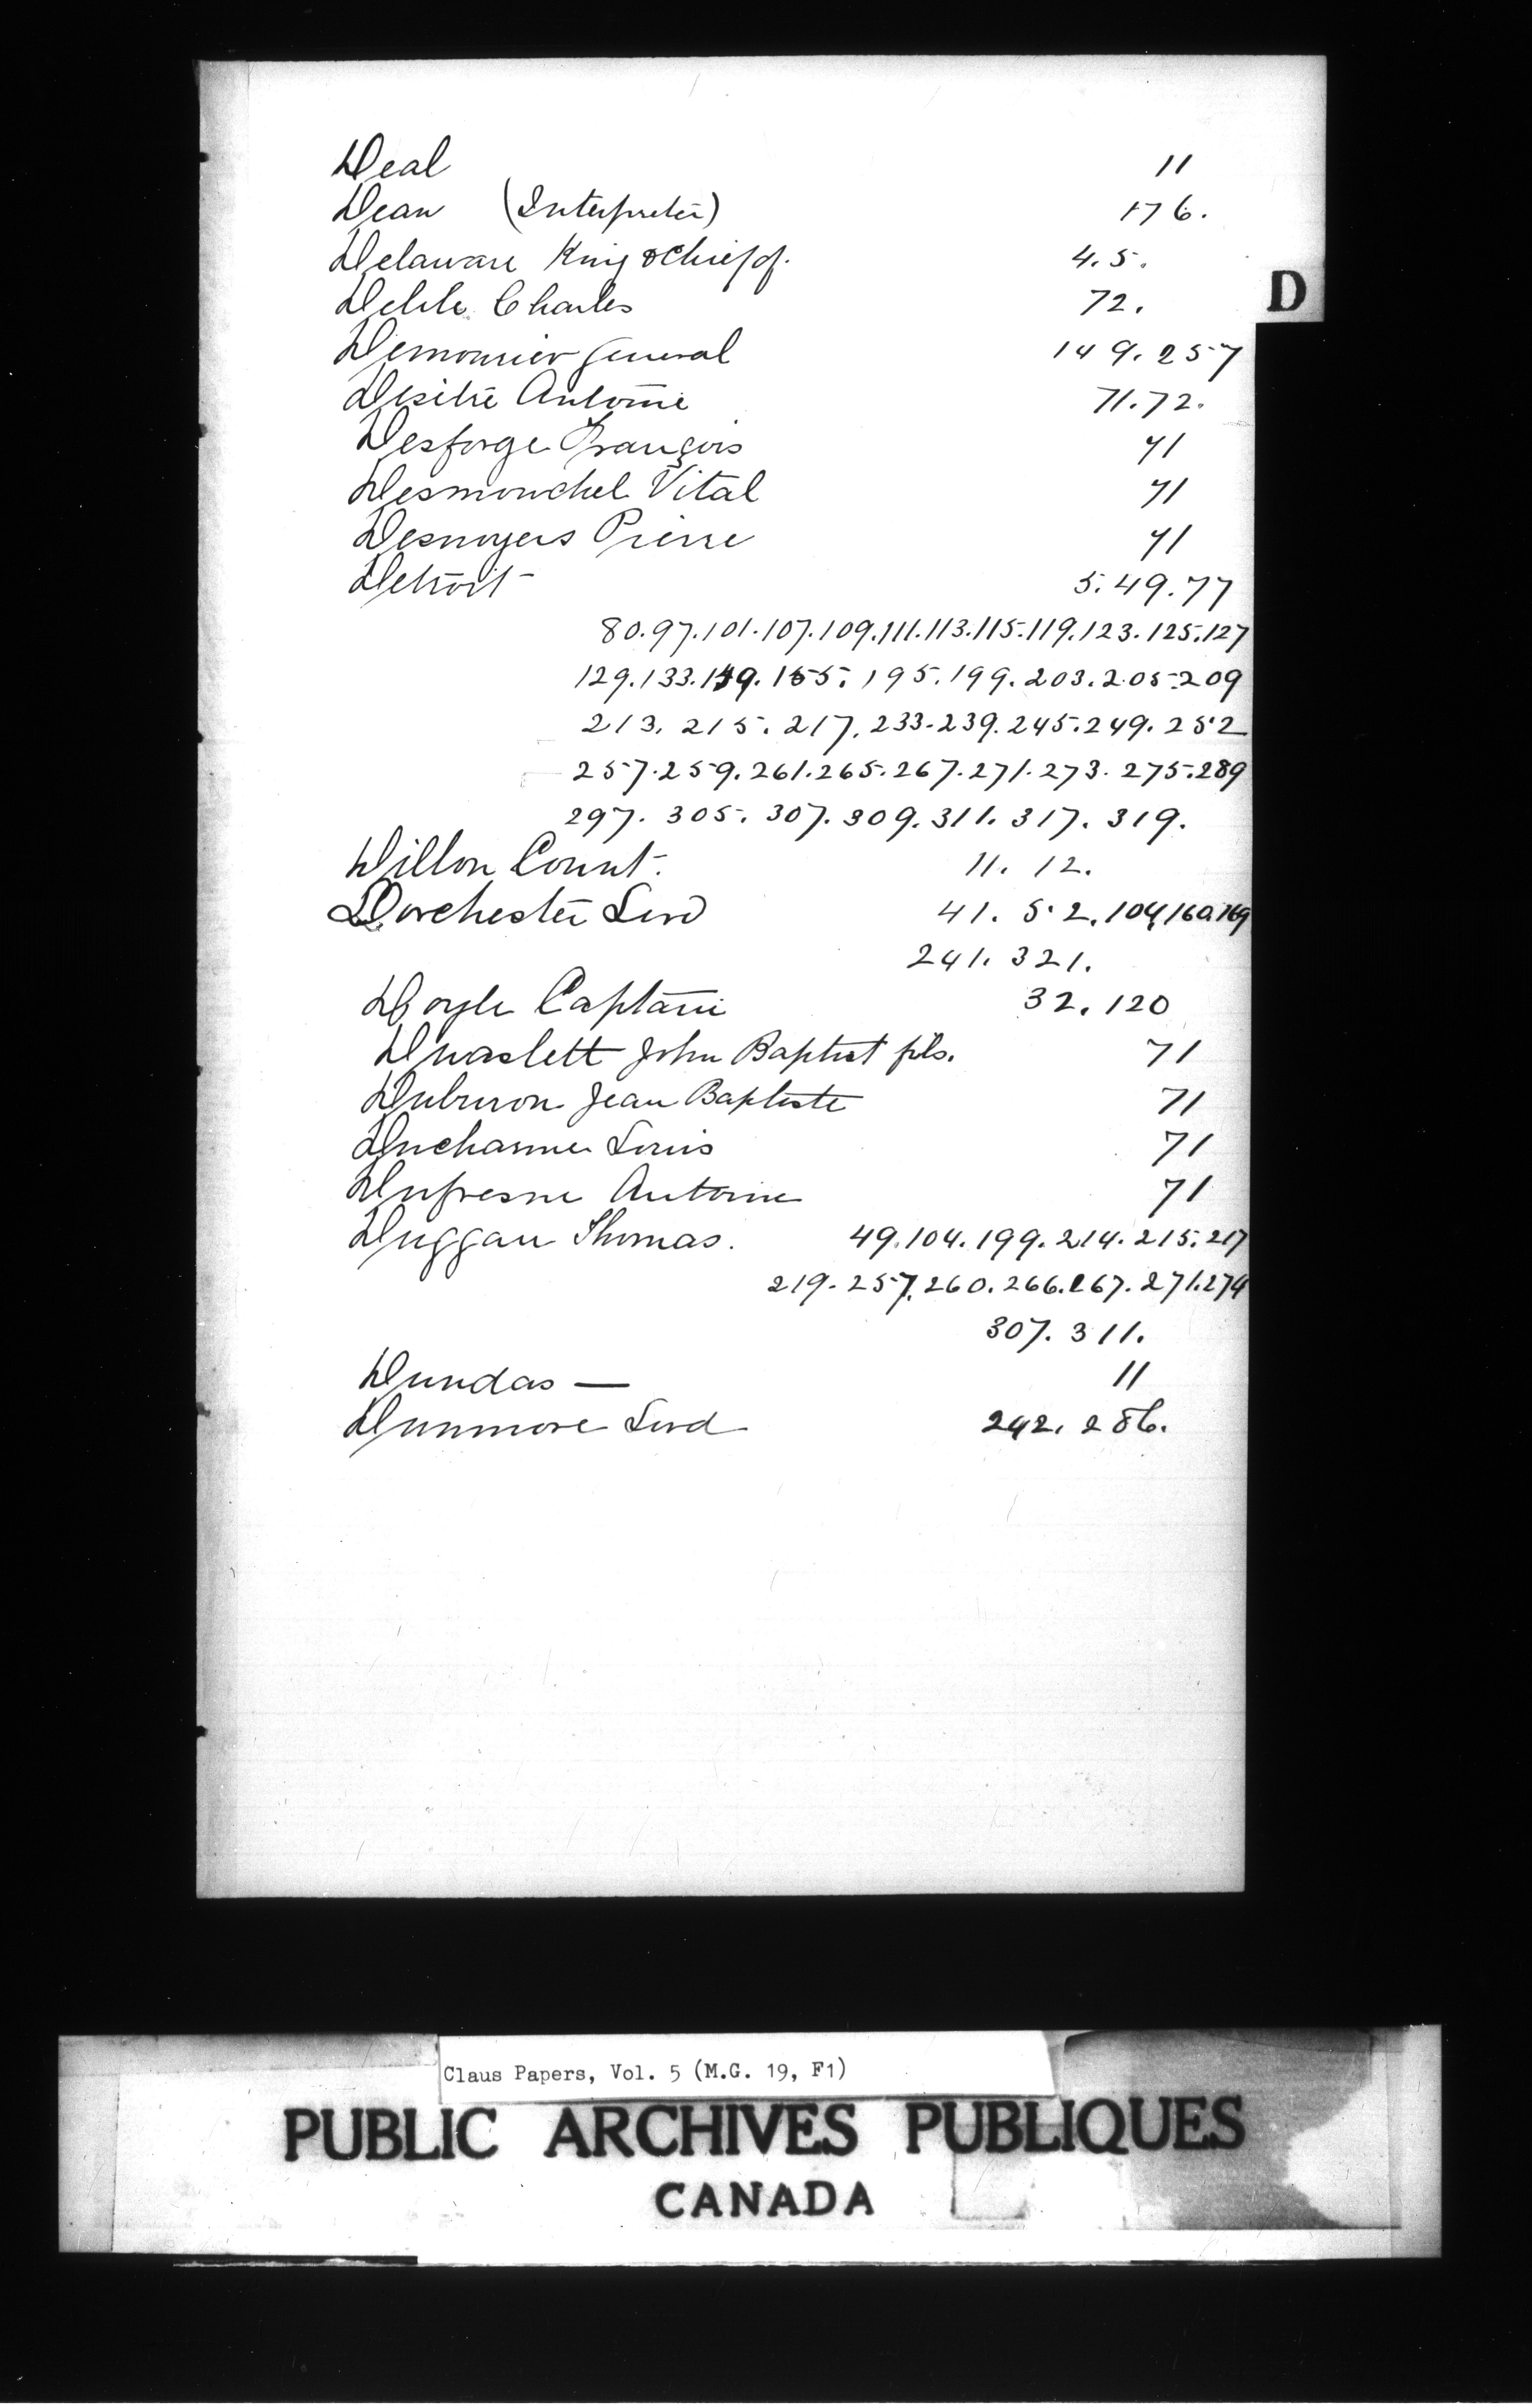 Deal 11
Dean (Interpreter) 176.
Delaware King & Chief of. 4.5.
D
Delile Charles 72.
Demourier General 149.257
Desitré Antoine 71.72.
Desforge François 71
Desmouchel Vital 71
Desnoyers Pierre 71
Detroit 5.49.77
80.97.101.107.109.111.113.115.119.123.125.127
129.133.149.155.195.199.203.205.209
213.215.217.233.239.245.249.252
257.259.261.265.267.271.273.275.289
297.305.307.309.311.317.319.
Dillon Count. 11. 12.
Dorchester Lord 41. 52.104.160.169
241. 321.
Doyle Captain 32. 120
John Baptist fils. 71
Dubruon Jean Baptiste 71
Ducharme Louis 71
Dufresne Antoine 71
Duggan Thomas. 49.104.199.214.215.217
219.257.260.266.267.271.274
307. 311.
Dundas — 11
Dunmore Lord 242. 286.
Claus Papers, Vol. 5 (M.G. 19, F1)
PUBLIC ARCHIVES PUBLIQUES
CANADA